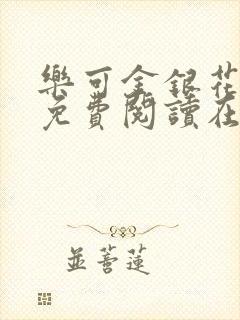 樂可金銀花
免費閱讀在
並蒂蓮